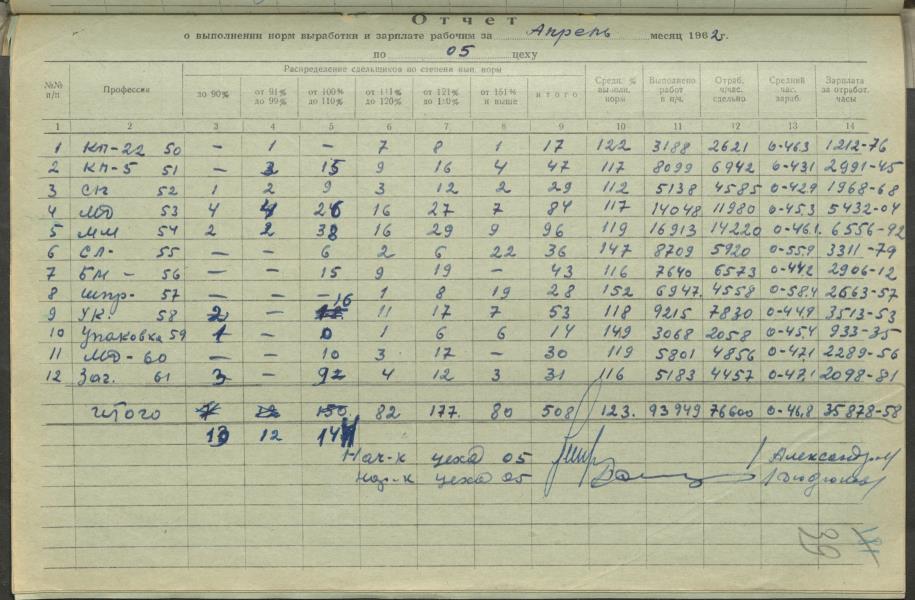 Отчет
о выполнении норм выработки и зарплате рабочим за Апрель месяц 1962г.
по 05 цеху
№№ п/п Профессия Распределение сдельщиков по степени вып. нормы Средн. % выполн. норм Выполнено работ в н/ч. Отраб. ч/час. сдельно Средний час. зараб. Зарплата за отработ. часы
до 90% от 91% до 99% от 100% до 110% от 111% до 120% от 121% до 150% от 151% и выше итого
1 2 3 4 5 6 7 8 9 10 11 12 13 14
1 КП-22 50 — 1 — 7 8 1 17 122 3188 2621 0-463 1212-76
2 КП-5 51 — 3 15 9 16 4 47 117 8099 6942 0-431 2991-45
3 СП 52 1 2 9 3 12 2 29 112 5138 4585 0-429 1968-68
4 МФ 53 4 4 26 16 27 7 84 117 14048 11980 0-453 5432-04
5 ММ 54 2 2 38 16 29 9 96 119 16913 14220 0-461 6556-92
6 СЛ- 55 — — 6 2 6 22 36 147 8709 5920 0-559 3311-79
7 БМ - 56 — — 15 9 19 — 43 116 7640 6573 0-442 2906-12
8 Шпр- 57 — — — 1 8 19 28 152 6947 4558 0-584 2663-57
9 УК. 58 2 — 16 11 17 7 53 118 9215 7830 0-449 3513-53
10 Упаковка 59 1 — 0 1 6 6 14 149 3068 2058 0-454 933-35
11 МФ-60 — — 10 3 17 — 30 119 5801 4856 0-471 2289-56
12 Заг. 61 3 — 9 4 12 3 31 116 5183 4457 0-471 2098-81
Итого 82 177. 80 508 123. 93949 76600 0-46,8 35878-58
13 12 144
Нач-к цеха 05 Александров
цеха 05
39